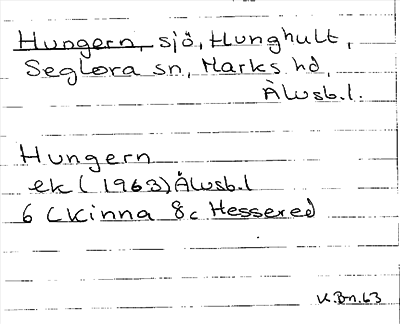 Hungern, sjö, Hunghult,
Seglora sn, Marks hd,
Älvsb.l.
Hungern
ek (1963) Älvsb.l
6 C Kinna 8c Hessered
K.Bn.63